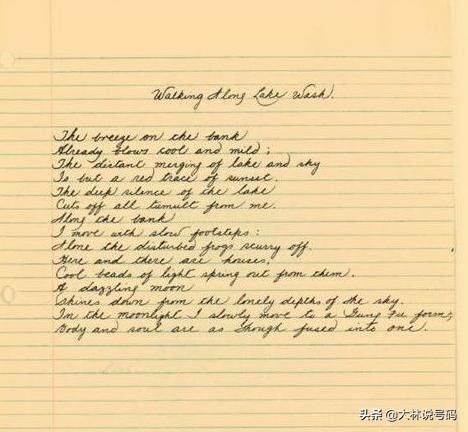 Walking Along Lake Wash.
The breeze on the bank
Already blows cool and mild;
The distant merging of lake and sky
Is but a red trace of sunset.
The deep silence of the lake
Cuts off all tumult from me.
Along the bank
I move with slow footsteps:
Alone the disturbed frogs scurry off.
Here and there are houses,
Cool beads of light spring out from them.
A dazzling moon
Shines down from the lonely depths of the sky.
In the moonlight I slowly move to a Gung Fu form,
Body and soul are as though fused into one.
头条 @大林说号码